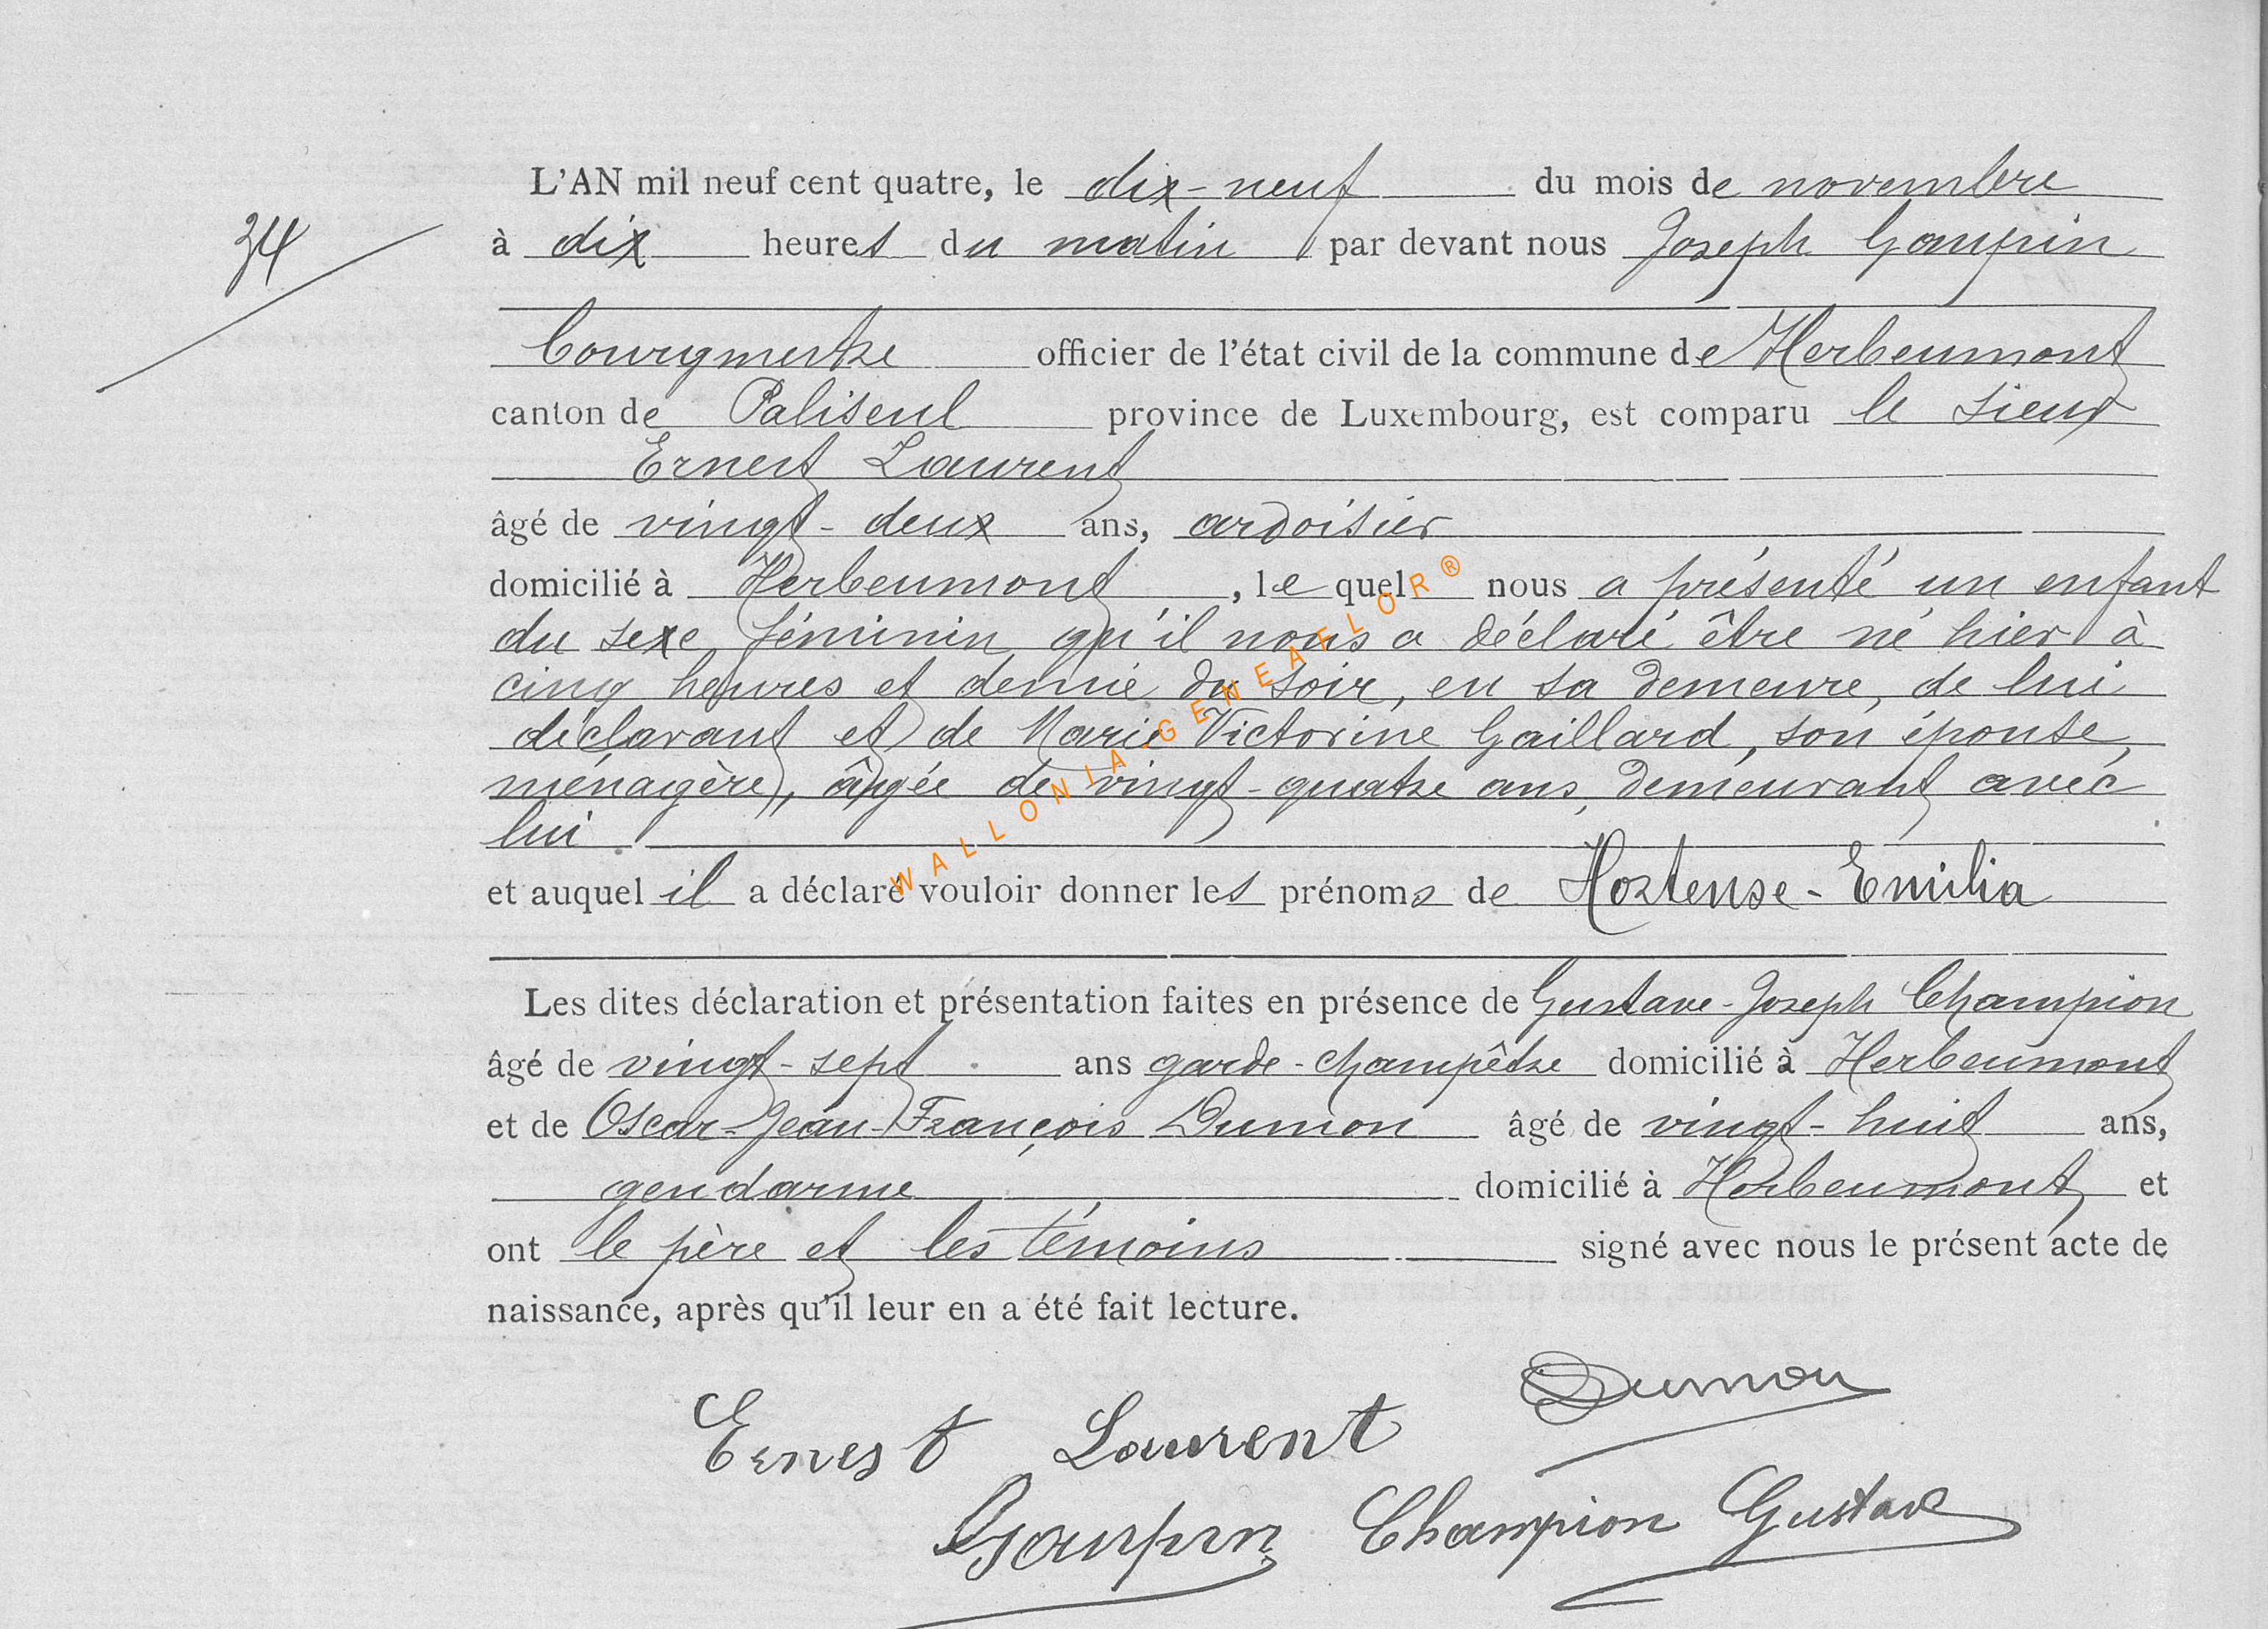 L'AN mil neuf cent quatre, le dix-neuf du mois de novembre
34
à dix heures du matin par devant nous Joseph Gaupin
bourgmestre officier de l'état civil de la commune de Herbeumont
canton de Paliseul province de Luxembourg, est comparu le sieur
Ernest Laurent
âgé de vingt-deux ans, ardoisier
domicilié à Herbeumont, le quel nous a présenté un enfant
du sexe féminin qu'il nous a déclaré être né hier à
cinq heures et demie du soir, en sa demeure, de lui
déclarant et de Marie Victorine Gaillard, son épouse,
ménagère, âgée de vingt-quatre ans, demeurant avec
lui.
et auquel il a déclaré vouloir donner les prénoms de Hortense-Emilia
Les dites déclaration et présentation faites en présence de Gustave-Joseph Champion
âgé de vingt-sept ans garde-champêtre domicilié à Herbeumont
et de Oscar-Jean-François Dumon âgé de vingt-huit ans,
gendarme domicilié à Herbeumont et
ont le père et les témoins signé avec nous le présent acte de
naissance, après qu'il leur en a été fait lecture.
Dumon
Ernest Laurent
Gaupin Champion Gustave
WALLONIA GENEAFLOR®